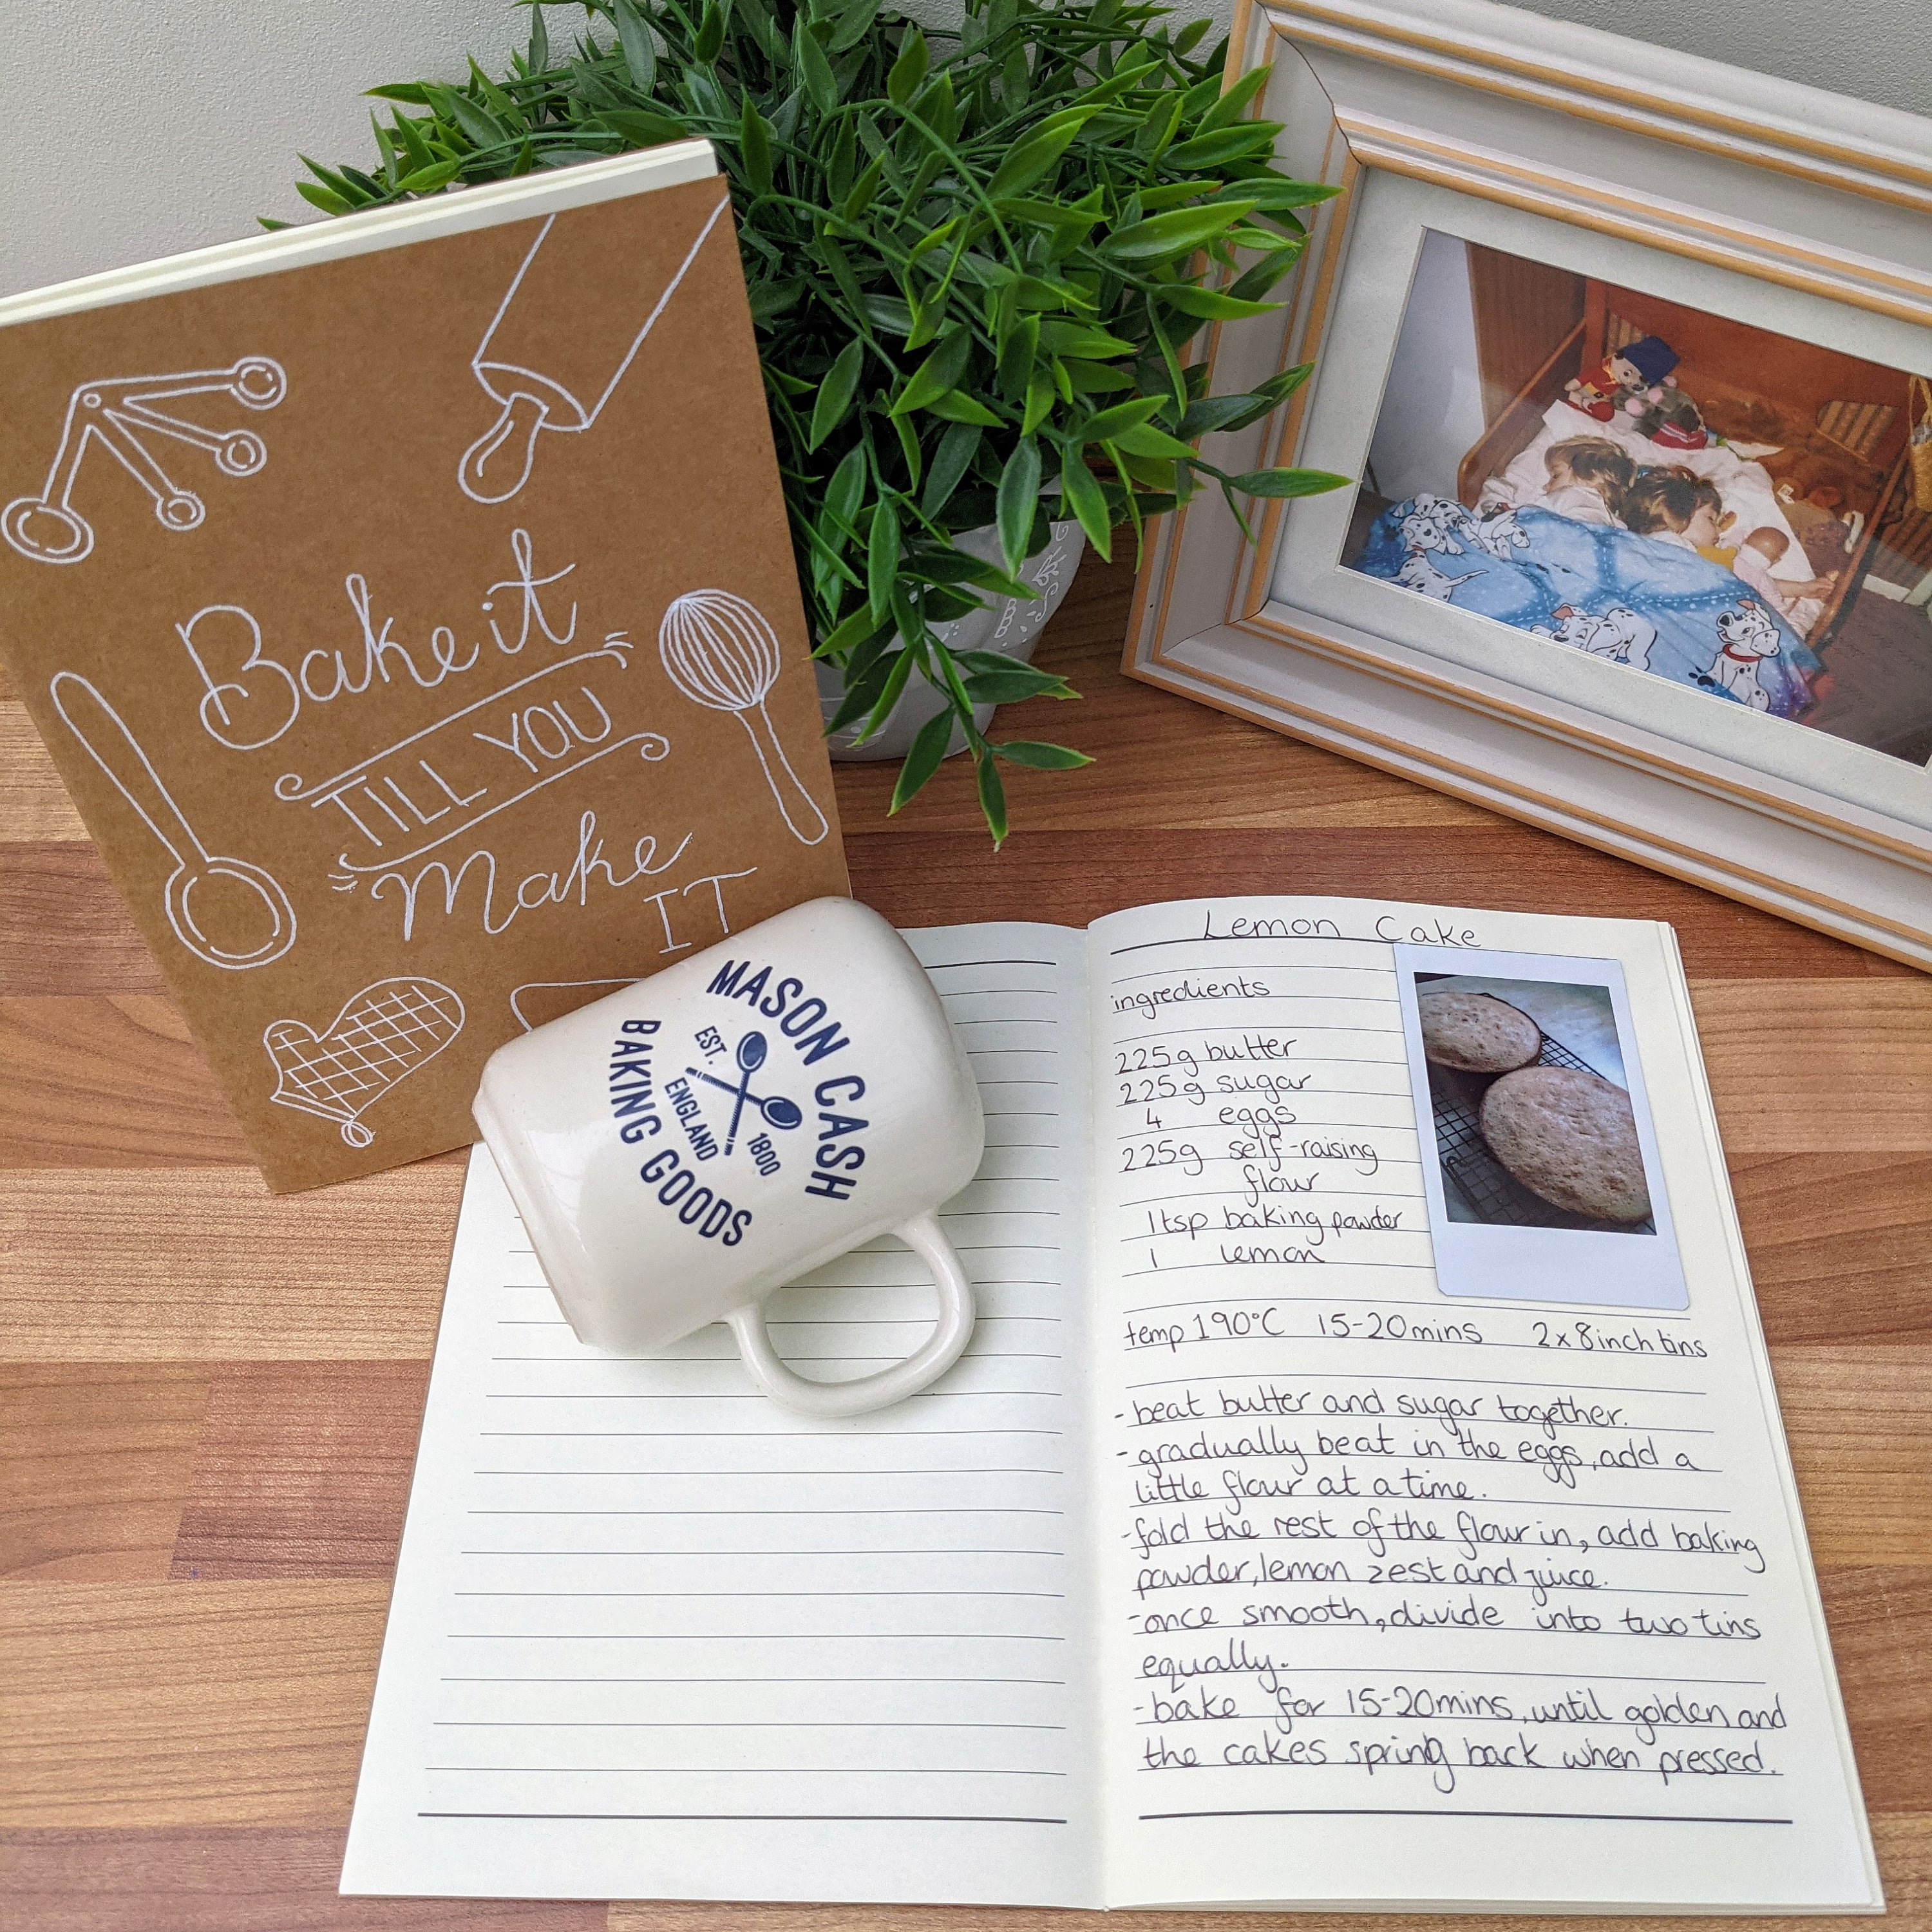 Bake it
TILL YOU
Make
IT
MASON CASH
EST. 1800
ENGLAND
BAKING GOODS
Lemon Cake
ingredients
225g butter
225g sugar
4 eggs
225g self-raising
flour
1tsp baking powder
1 lemon
temp 190°C 15-20mins 2x8inch tins
- beat butter and sugar together.
- gradually beat in the eggs, add a
little flour at a time.
- fold the rest of the flour in, add baking
powder, lemon zest and juice.
- once smooth, divide into two tins
equally.
- bake for 15-20mins, until golden and
the cakes spring back when pressed.